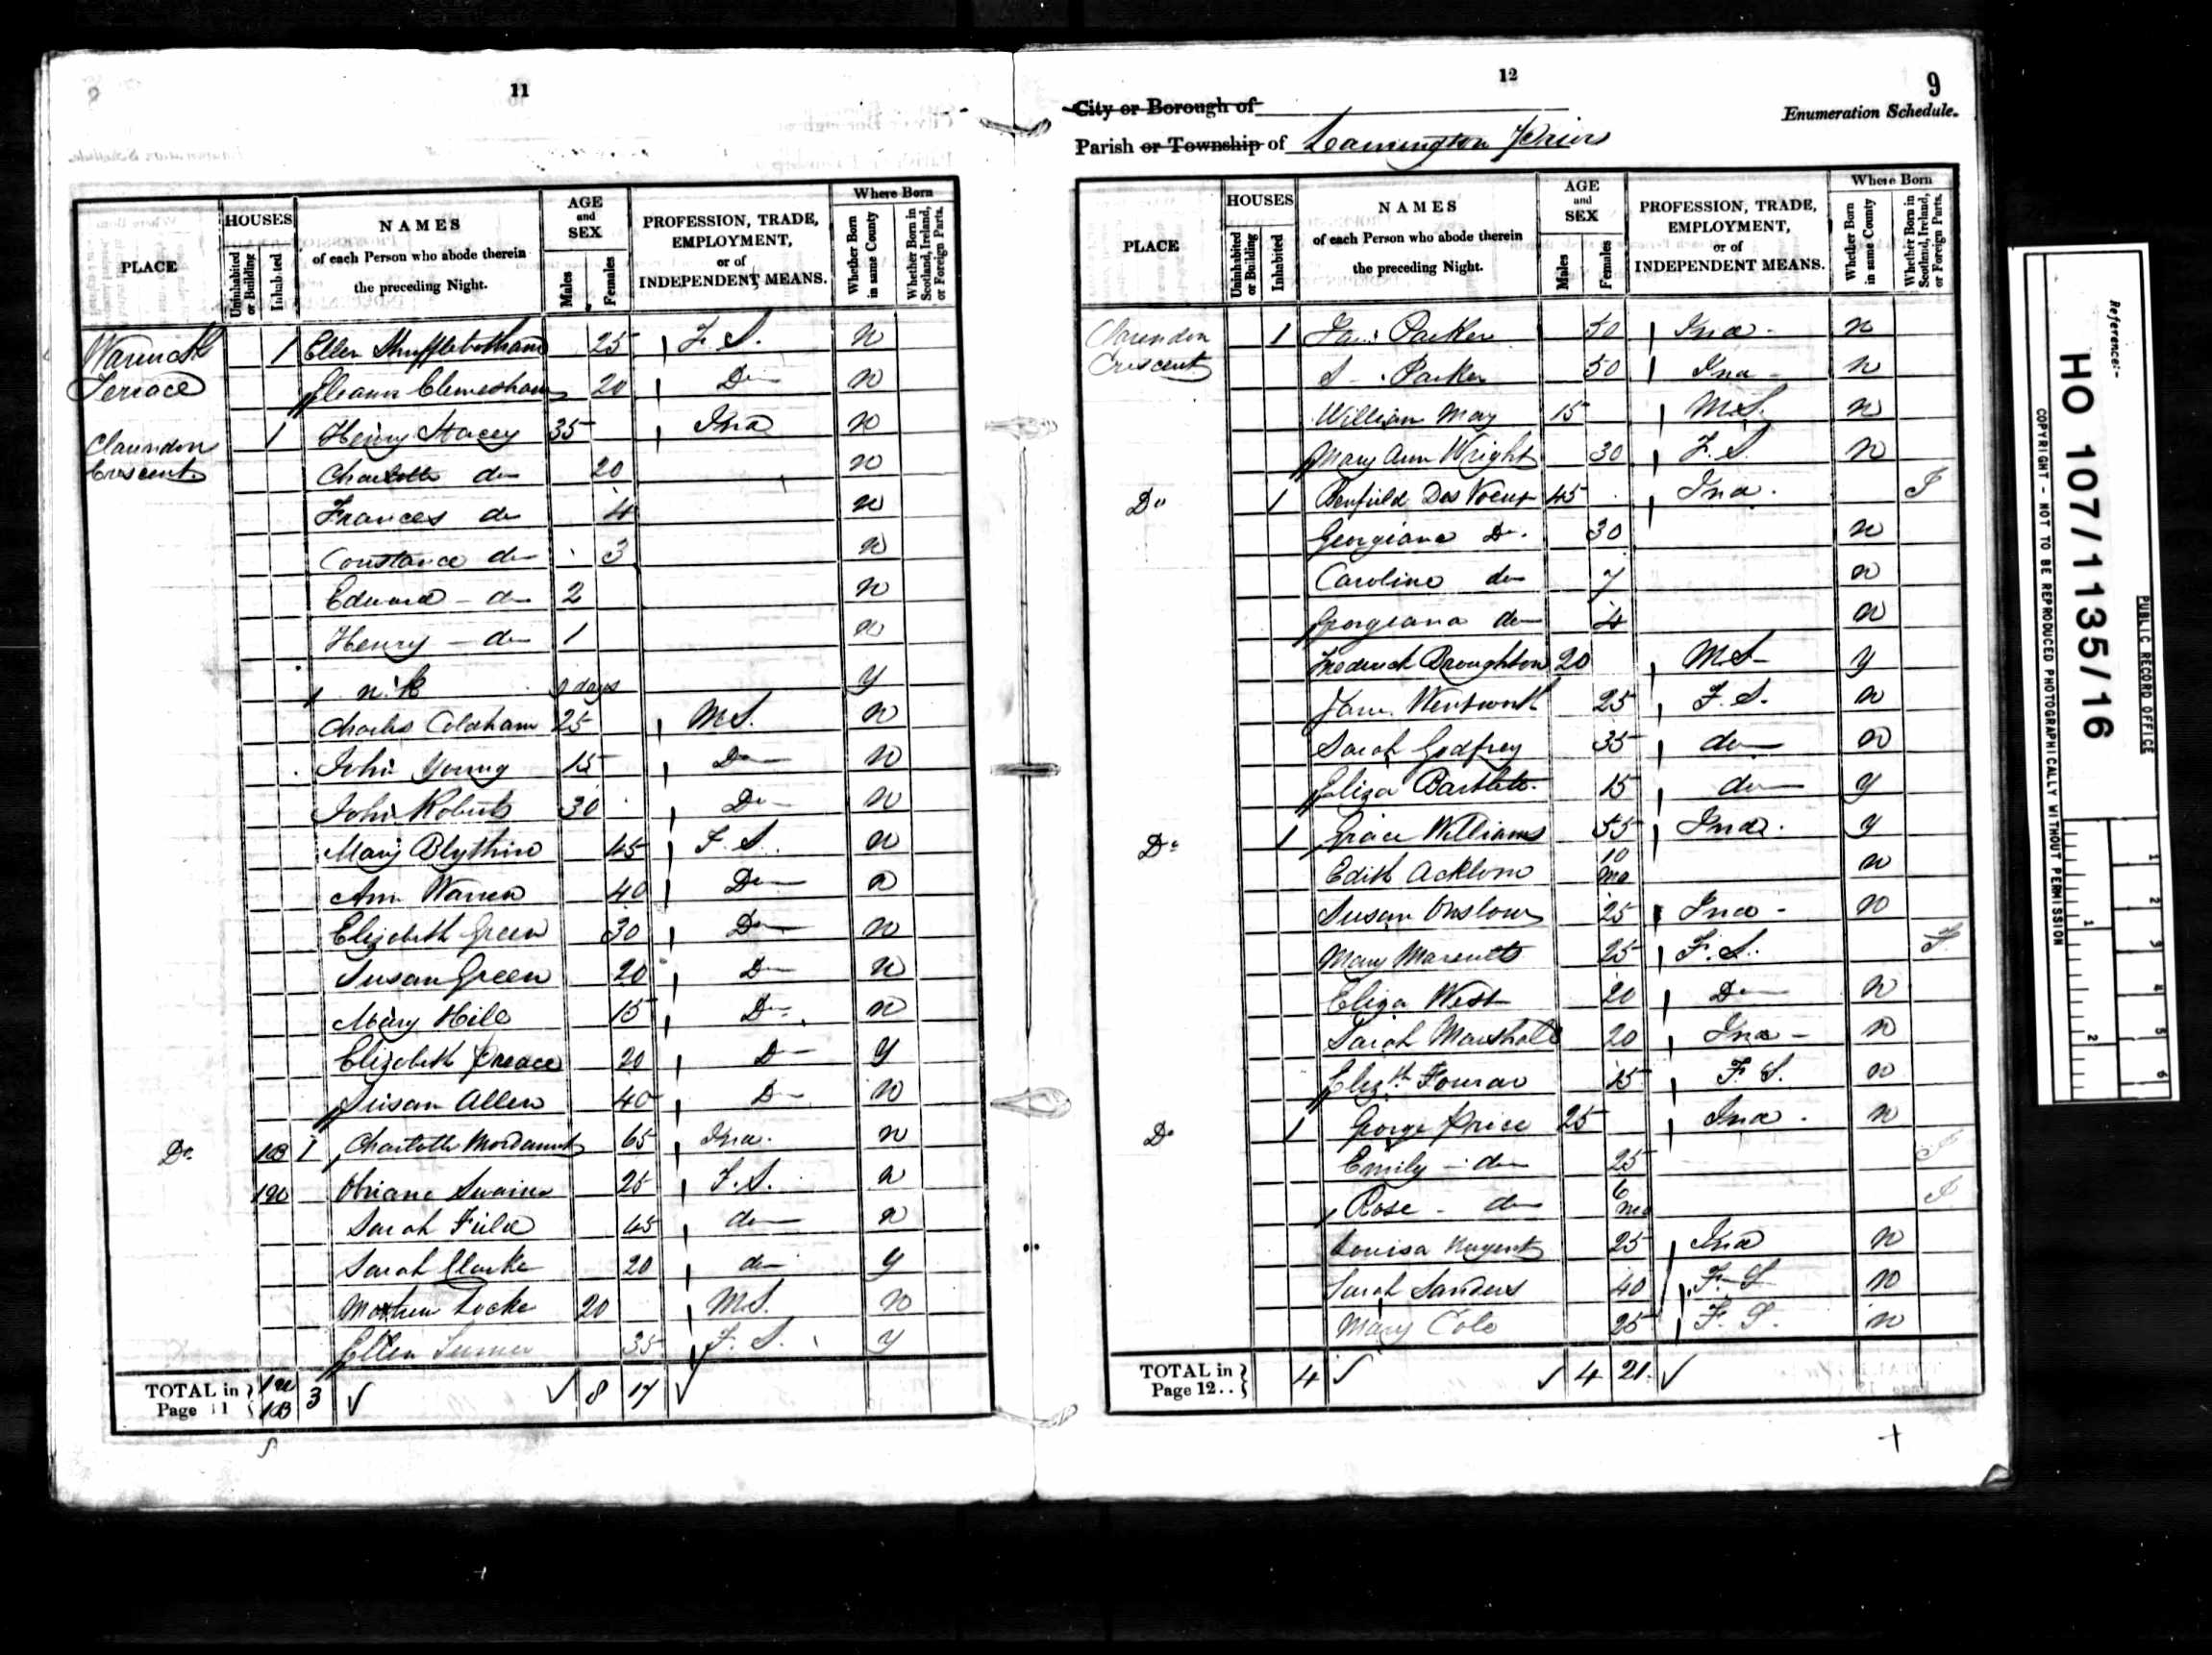 11
PLACE
HOUSES
Uninhabited or Building
Inhabited
NAMES
of each Person who abode therein
the preceding Night.
AGE
and
SEX
Males
Females
PROFESSION, TRADE,
EMPLOYMENT,
or of
INDEPENDENT MEANS.
Where Born
Whether Born in same County
Whether Born in Scotland, Ireland, or Foreign Parts.
Warwick 1 Ellen Shufflebotham 25 F. S. N
Terrace Eleanor 20 Do N
Clarendon 1 Henry Stacey 35 Ind N
Crescent Charlotte do 20 N
Frances do 4 N
Constance do 3 N
Edward do 2 N
Henry do 1 N
N. K 9 days Y
Charles Coldham 25 M.S. N
John Young 15 Do N
John Roberts 30 Do N
Mary Blythin 45 F. S. N
Ann Warren 40 Do N
Elizabeth Green 30 Do N
Susan Green 20 Do N
Mary Hill 15 Do N
Elizabeth 20 Do Y
Susan Allen 40 Do N
Do 1 B 1 Charlotte Mordaunt 65 Ind. N
1 U Swaine 25 F.S. N
Sarah Field 45 do N
Sarah Clarke 20 do Y
Mathew Locke 20 M.S. N
Ellen 35 F. S. Y
TOTAL in Page 11 1 U 1 B 3 8 17
12
9
City or Borough of
Enumeration Schedule.
Parish or Township of Leamington Priors
PLACE
HOUSES
Uninhabited or Building
Inhabited
NAMES
of each Person who abode therein
the preceding Night.
AGE
and
SEX
Males
Females
PROFESSION, TRADE,
EMPLOYMENT,
or of
INDEPENDENT MEANS.
Where Born
Whether Born in same County
Whether Born in Scotland, Ireland, or Foreign Parts.
Clarendon 1 Parker 50 Ind. N
Crescent S Parker 50 Ind N
William May 15 M.S. N
Mary Ann Wright 30 F. S N
Do 1 Des Voeux 45 Ind. F
Georgiana Do. 30 N
Caroline do 7 N
Georgiana do 4 N
Frederick Broughton 20 M.S N
Jane Wentworth 25 F. S. N
Sarah Godfrey 35 do N
Eliza Bartlett 15 do Y
Do 1 Grace Williams 55 Ind. Y
Edith Acklom 10 mo N
Susan Onslow 25 Ind N
Mary 25 F. S. F
Eliza West 20 Do N
Sarah Marshall 20 Ind N
Elizth 15 F. S. N
Do 1 George Price 25 Ind. N
Emily do 25
Rose do 6 mo
Louisa Nugent 25 Ind N
Sarah Sanders 40 F S N
Mary Cole 25 F. S. N
TOTAL in Page 12.. 4 4 21
Reference:-
HO 107/1135/16
PUBLIC RECORD OFFICE
COPYRIGHT - NOT TO BE REPRODUCED PHOTOGRAPHICALLY WITHOUT PERMISSION
1
2
1
2
3
4
5
6